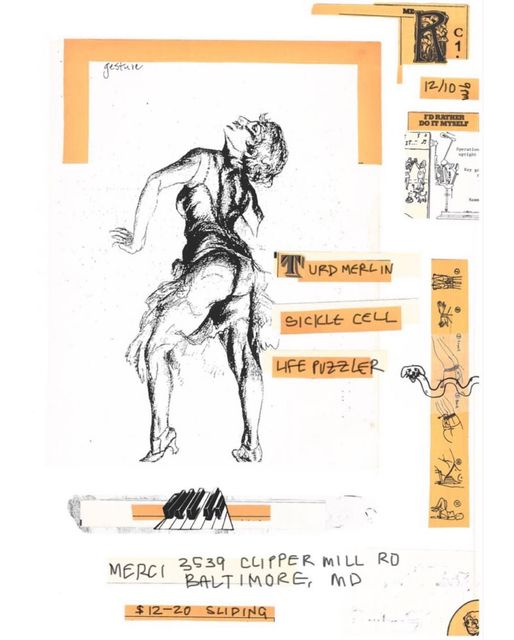 gesture
ME
R
C
1.
12/10 9PM
I'D RATHER
DO IT MYSELF
Operation
upright
Key
TURD MERLIN
SICKLE CELL
LIFE PUZZLER
MERCI 3539 CLIPPER MILL RD
BALTIMORE, MD
$12-20 SLIDING